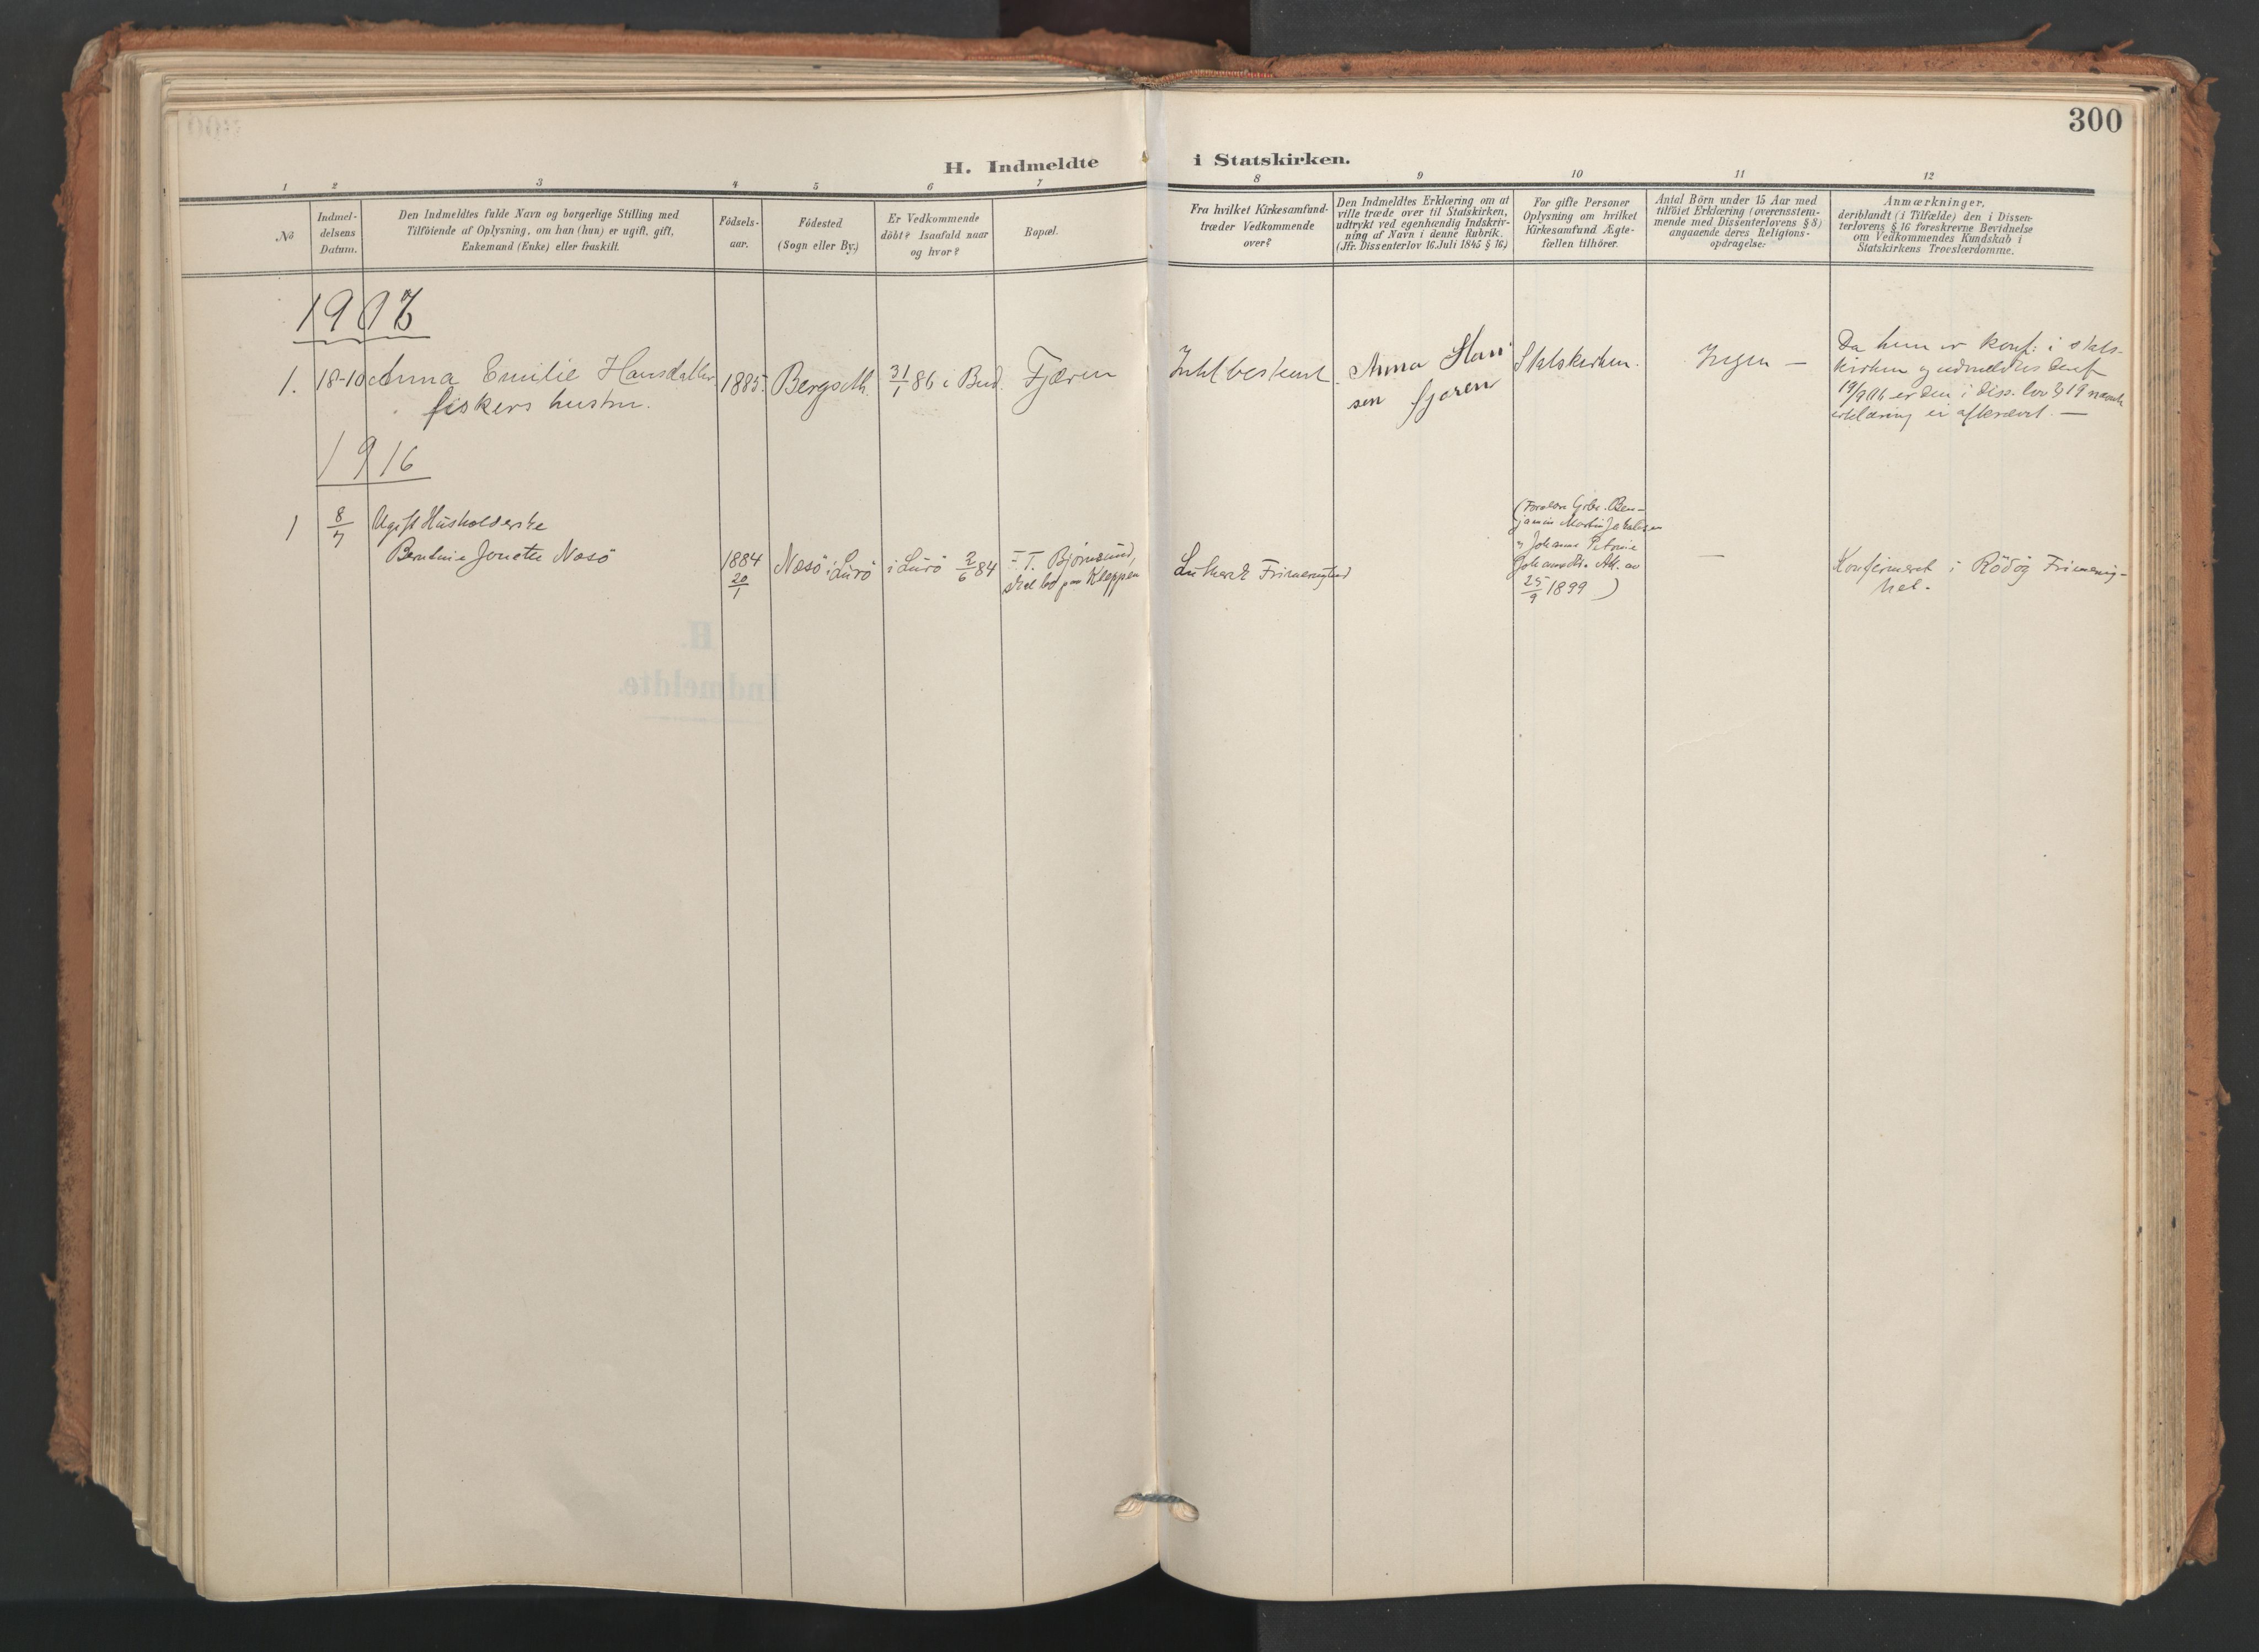 300
H. Indmeldte i Statskirken.
1 2 3 4 5 6 7 8 9 10 11 12
No
Indmel-
delsens
Datum.
Den Indmeldtes fulde Navn og borgerlige Stilling med
Tilföiende af Oplysning, om han (hun) er ugift, gift,
Enkemand (Enke) eller fraskilt.
Födsels-
aar.
Födested
(Sogn eller By.)
Er Vedkommende
döbt? Isaafald naar
og hvor?
Bopæl.
Fra hvilket Kirkesamfund
træder Vedkommende
over?
Den Indmeldtes Erklæring om at
ville træde over til Statskirken,
udtrykt ved egenhændig Indskriv-
ning af Navn i denne Rubrik.
(Jfr. Dissenterlov 16.Juli 1845 § 16.)
For gifte Personer
Oplysning om hvilket
Kirkesamfund Ægte-
fællen tilhörer.
Antal Börn under 15 Aar med
tilföiet Erklæring (overensstem-
mende med Dissenterlovens § 8)
angaaende deres Religions-
opdragelse.
Anmærkninger,
deriblandt (i Tilfælde) den i Dissen-
terlovens § 16 foreskrevne Bevidnelse
om Vedkommendes Kundskab i
Statskirkens Troeslærdomme.
1907
1. 18-10 Anna Emilie Hansdatter
fiskers hustru.
1885.
31/1 86 i Bud.
Fjæren
Anna Han
sen fjæren
Statskirken.
Ingen —
Da hun er konf: i stats-
kirken og udmeldtes deraf
19/9 06 er den i diss. lov § 19 nævnte
erklæring ei afkrævet. —
1916
1 8/7 Ugift Husholderske
Jonette Næsö
1884
20/1
Næsö i Lurö
i Lurö 2/6 84
F. T. Bjørnsund,
skal bo paa Kleppen
Luthersk Frimenighed
(Forældre Grbr. Ben-
jamin Martin Jakobsen
og Johanna Petrine
Johansdtr.
25/9 1899)
—
Konfirmeret i Rödöy Frimenig-
het.
H.
Indmeldte.